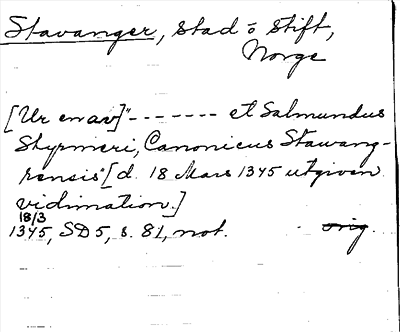 Stavanger, stad o stift,
Norge
[Ur en av]"------- et Salmundus
Styrmeri, Canonicus Stawang-
rensis" [d. 18 Mars 1345 utgiven
vidimation.]
18/3
1345, SD 5, s. 81, not. orig.